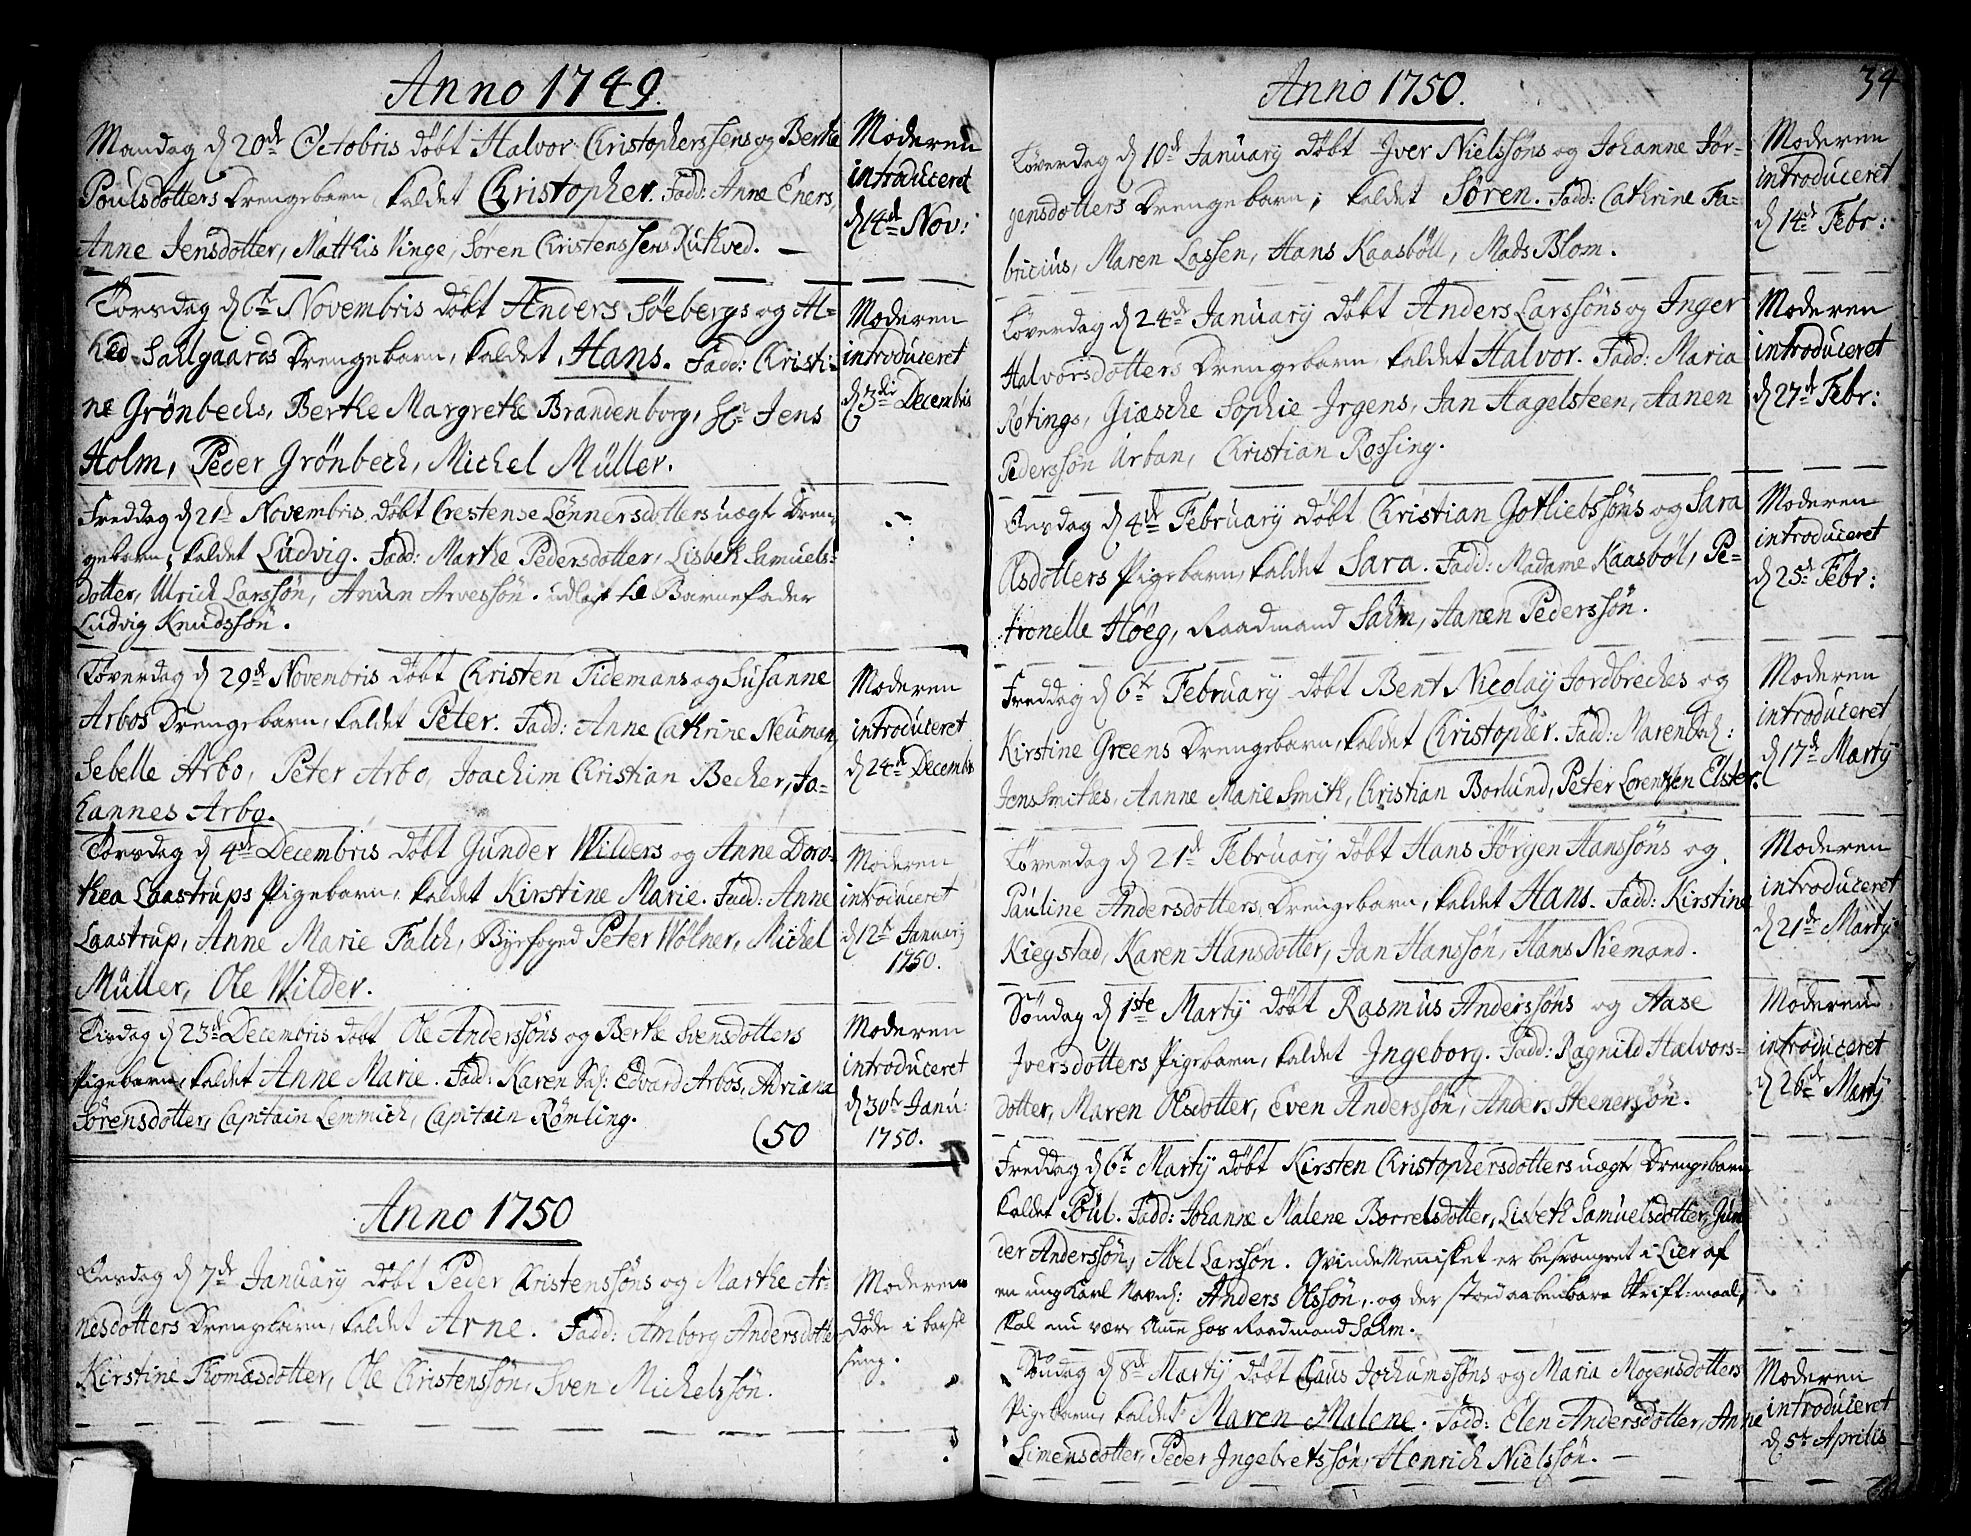 Anno 1749.
Mandag d 20de Octobris döbt Halvor Christopherssens og Berthe
Poulsdotters Drengebarn, kaldet Christopher. Fadd: Anne Eners,
Anne Jensdotter, Matthis Vinge, Sören Christenssens Rukved. —
Moderen
introduceret
d 14de Nov:
Torsdag d 6te Novembris döbt Anders Söebergs og Al-
hed Sallgaards Drengebarn, kaldet Hans. Fadd: Christi-
ne Grönbechs, Berthe Margrethe Brandenborg, Hr Jens
Holm, Peder Grönbech, Michel Müller.
Moderen
introduceret
d 3die Decembris
Freddag d 21de Novembris döbt Crestense Lönnersdotters uægte Dren-
gebarn, kaldet Ludvig. Fadd: Marthe Pedersdotter, Lisbeth Samuels-
dotter, Ulrich Larssön, Anun Arvessön. udlagt til Barnefader
Ludvig Knudssön.
Löverdag d 29de Novembris döbt Christen Tidemans og Susanne
Arbos Drengebarn, kaldet Peter. Fadd: Anne Cathrine Neuman,
Sebelle Arbo, Peter Arbo, Joachim Christian Becher, Jo-
hannes Arbo.
Moderen
introduceret
d 24de Decembr
Torsdag d 4de Decembris döbt Gunder Wilders og Anne Doro-
thea Laastrups Pigebarn, kaldet Kirstine Marie. Fadd: Anne
Laastrup, Anne Marie Falch, Byefoged Peter Wölner, Michel
Müller, Ole Wilder.
Moderen
introduceret
d 12te January
1750.
Tisdag d 23de Decembris döbt Ole Anderssöns og Berthe Svensdotters
Pigebarn, kaldet Anne Marie. Fadd: Karen Sal: Edvard Arbos, Adriana
Sörensdotter, Capitain Lemmich, Capitain Römling.
(50
Moderen
introduceret
d 30te Janu:
1750.
Anno 1750
Onsdag d 7de January döbt Peder Christenssöns og Marthe Ar-
nesdotters Drengebarn, kaldet Arne. Fadd: Amborg Andersdotte
Kirstine Thomasdotter, Ole Christenssön, Sven Michelssön.
Moderen
döde i barsel
seng.
34
Anno 1750.
Löverdag d 10de January döbt Iver Nielssöns og Johanne Jör-
gensdotters Drengebarn, kaldet Sören. Fadd: Cathrine Fa-
bricius, Maren Lassen, Hans Kaasböll, Mads Blom.
Moderen
introduceret
d 14de Febr:
Löverdag d 24de January döbt Anders Larssöns og Inger
Halvorsdotters Drengebarn kaldet Halvor. Fadd: Maria
Rötings, Giæsche Sophie Irgens, Jan Hagelsteen, Aanen
Pederssön Urban, Christian Rossing.
Moderen
introduceret
d 27de Febr:
Onsdag d 4de February döbt Christian Gotliebssöns og Sara
Olsdotters Pigebarn, kaldet Sara. Fadd: Madame Kaasböl, Pe-
tronelle Höeg, Raadmand Salm, Aanen Pederssön.
Moderen
introduceret
d 25de Febr:
Freddag d 6te February döbt Bent Nicolay Jordbrechs og
Kirstine Greens Drengebarn, kaldet Christopher. Fadd: Maren Sal:
Jens Smithes, Anne Marie Smith, Christian Borlund, Peter Lorentzen Elster.
Moderen
introduceret
d 17de Martij
Löverdag d 21de February döbt Hans Jörgen Hanssöns og
Pauline Andersdotters Drengebarn, kaldet Hans. Fadd: Kirstine
Kiegstad, Karen Hansdotter, Jan Hanssön, Hans Niemand.
Moderen
introduceret
d 21de Martij
Söndag d 1ste Martij döbt Rasmus Anderssöns og Aase
Iversdotters Pigebarn, kaldet Ingeborg. Fadd: Ragnild Halvors-
dotter, Maren Olsdotter, Even Anderssön, Anders Steenerssön.
Moderen
introduceret
d 26de Martij
Freddag d 6te Martij döbt Kirsten Christophersdotters uægte Drengebarn
kaldet Poul. Fadd: Johanne Malene Borrelsdotter, Lisbeth Samuelsdotter, Gun
der Anderssön, Abel Larssön. Qvinde Mennisket er besvangret i Lier af
en ung Karl Navnl: Anders Olssön, og der stoed aabenbare Skrift-maal,
skal nu være Amme hos Raadmand Salm.
Söndag d 8de Martij döbt Claus Jochumssöns og Maria Mogensdotters
Pigebarn, kaldet Maren Malene. Fadd: Elen Andersdotter, Anne
Simensdotter, Peder Ingebretssön, Henrich Nielssön. —
Moderen
introduceret
d 5te Aprilis